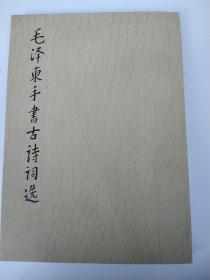 毛泽东手書古诗词选